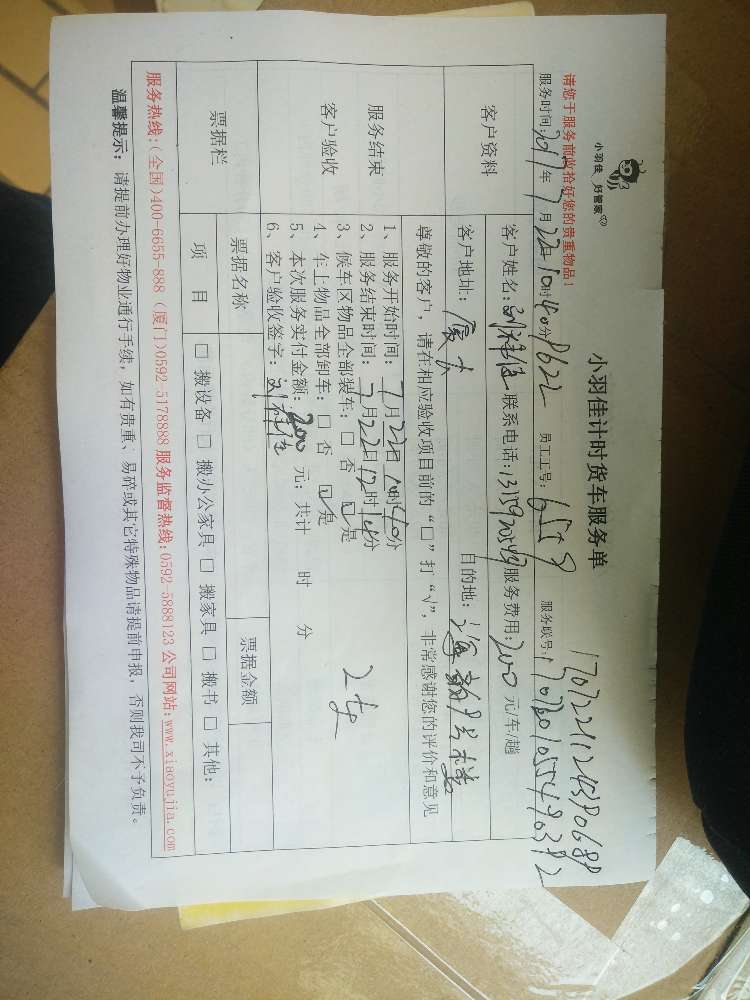 小羽佳 好管家
小羽佳计时货车服务单
170722112438068
请您于服务前收拾好您的贵重物品!
服务时间:2017年7月22日10时40分 8622 员工工号:6559 服务联号:
客户资料
客户姓名: 联系电话: 服务费用:200元/车/趟
客户地址:厦大 目的地:海韵
服务结束 客户验收
尊敬的客户,请在相应验收项目前的“□”打“√”,非常感谢您的评价和意见
1、服务开始时间:7月22日10时40分
2、服务结束时间:7月22日12时10分
3、候车区物品全部装车:□ 否 ☑ 是
4、车上物品全部卸车:□ 否 ☑ 是
5、本次服务实付金额:200 元;共计 时 分
6、客户验收签字:
2车
票据栏
票据名称 票据金额
项 目 □ 搬设备 □ 搬办公家具 □ 搬家具 □ 搬书 □ 其他:
服务热线:(全国)400-6655-888 (厦门)0592-5178888 服务监督热线:0592-5888123 公司网站:www.xiaoyujia.com
温馨提示:请提前办理好物业通行手续,如有贵重、易碎或其它特殊物品请提前申报,否则我司不予负责。